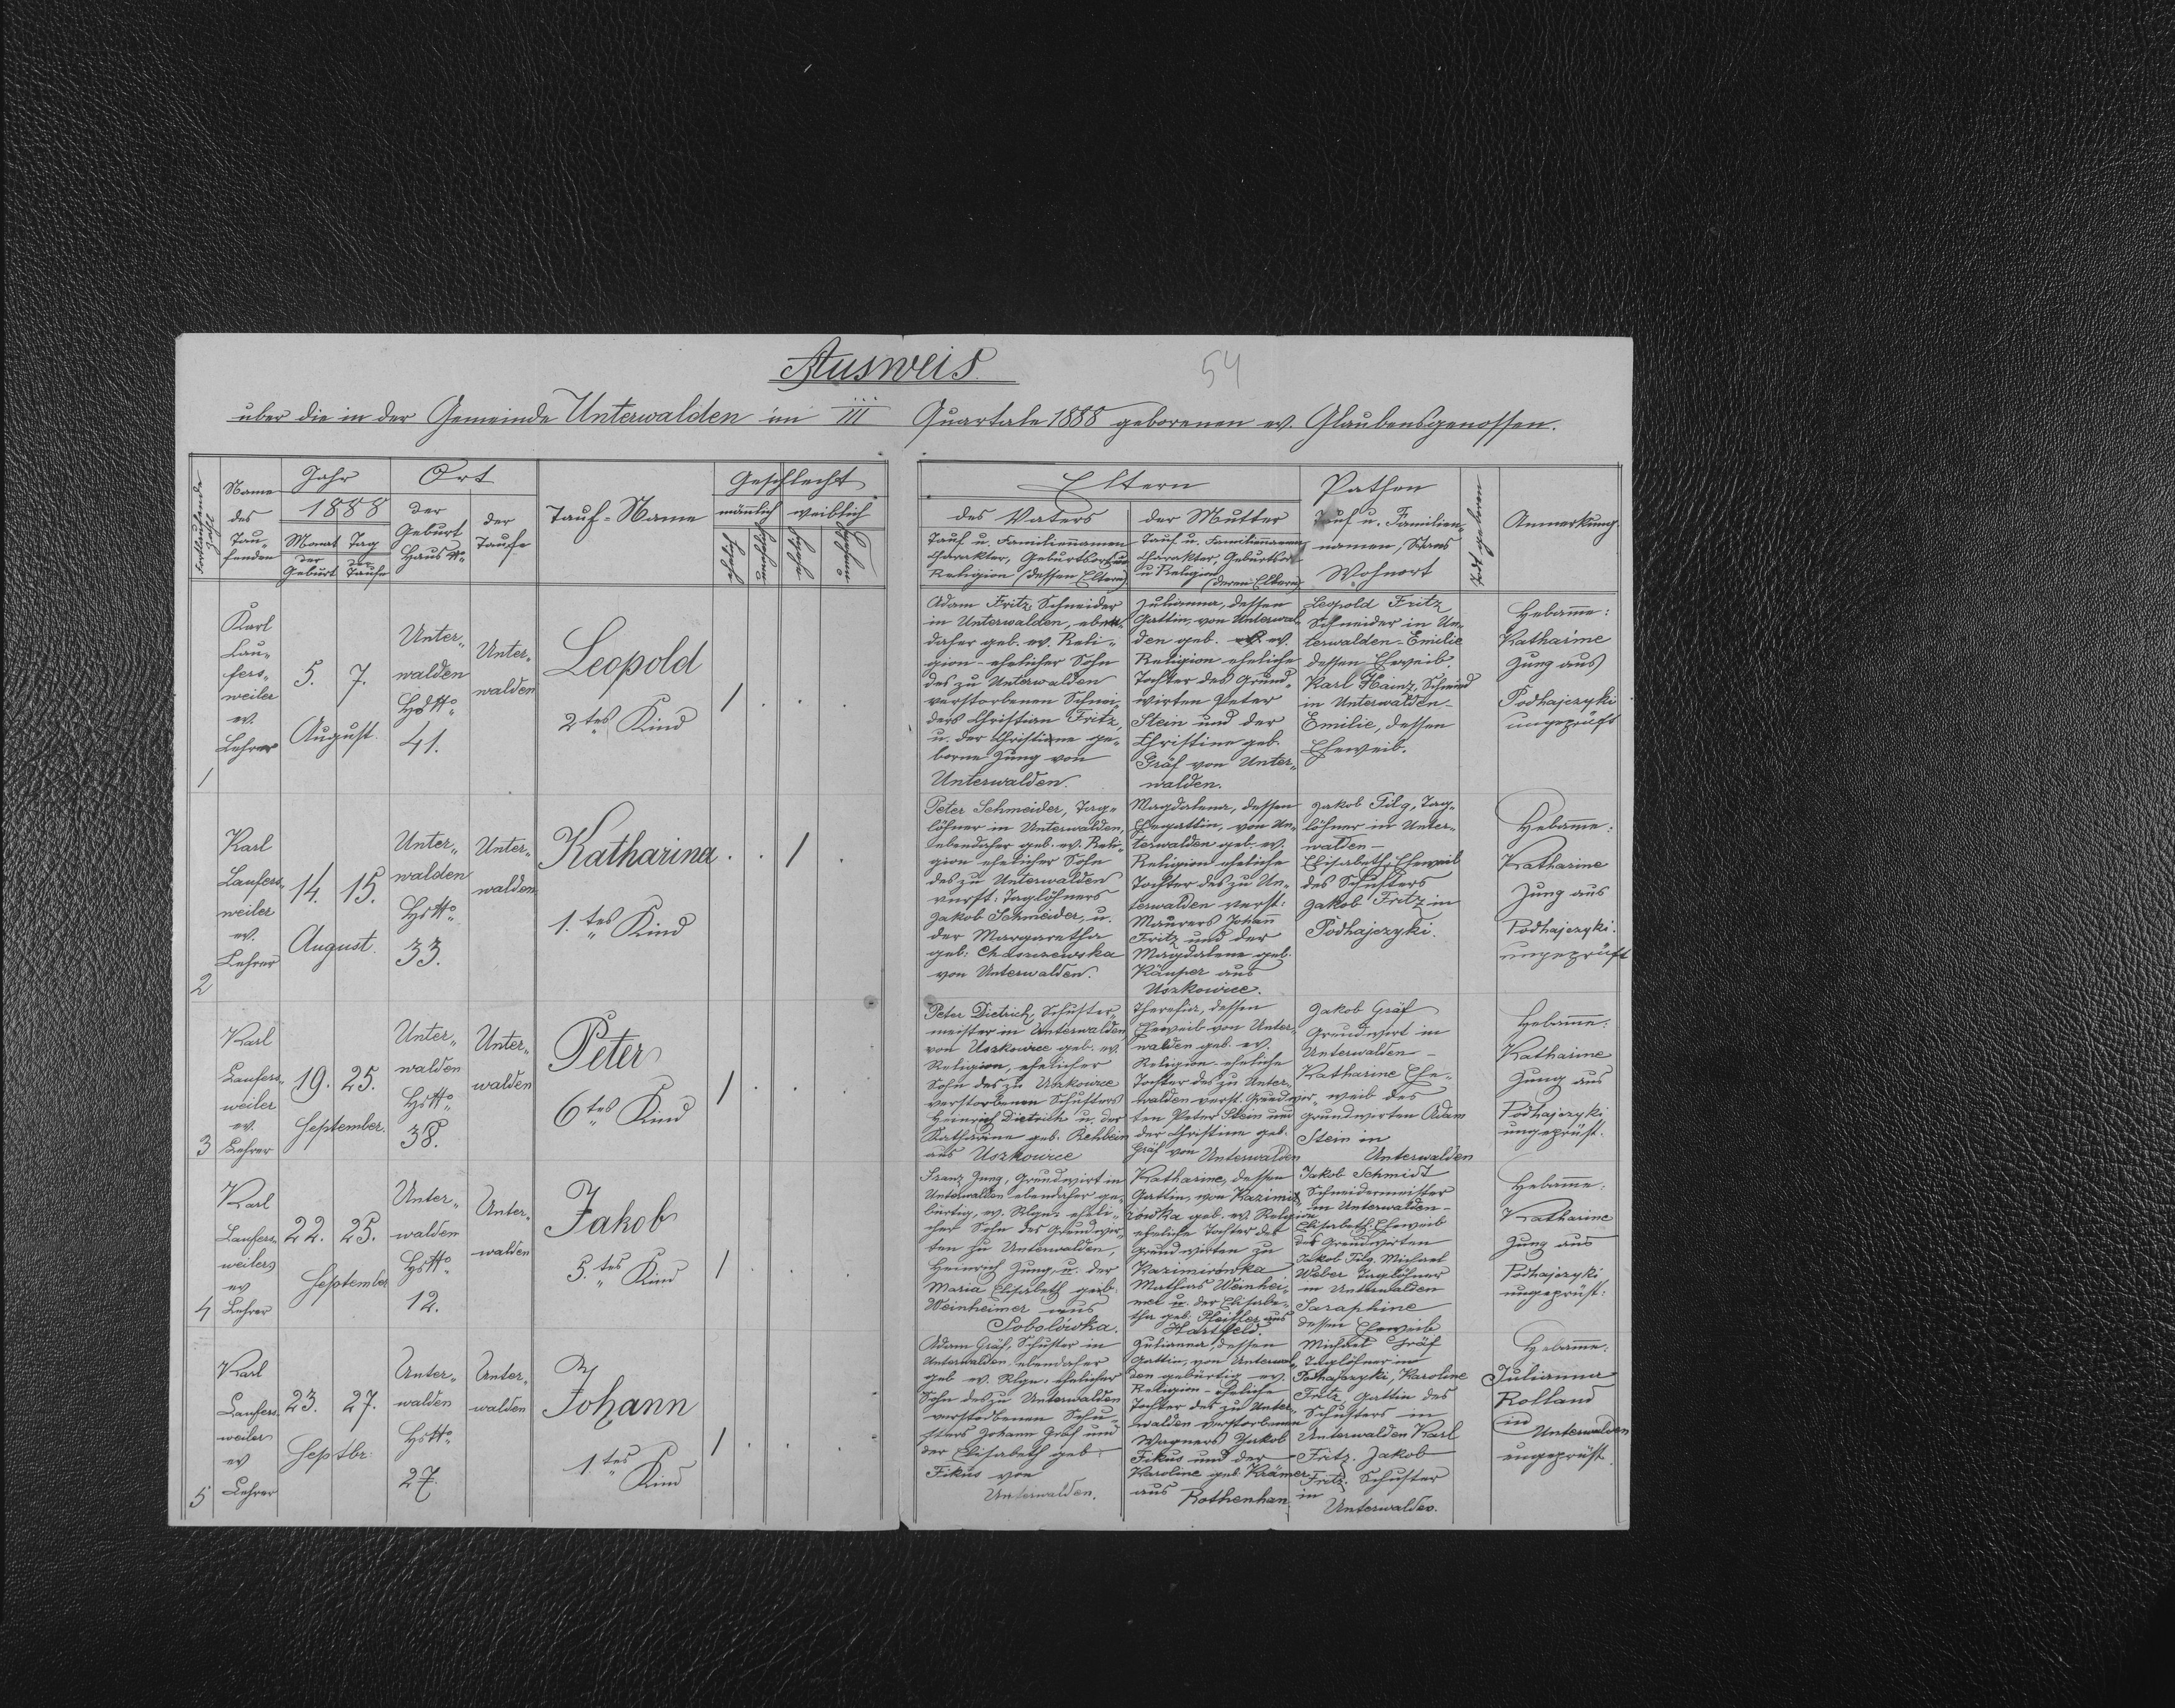 Ausweis
54
über die in der Gemeinde Unterwalden im III Quartale 1888 geborenen ev. Glaubensgenossen.
Fortlaufende Zahl
Name des Taufenden
Jahr 1888
Monat Tag
der Geburt
der Taufe
Ort
der Geburt Haus No
der Taufe
Tauf-Name
Geschlecht
männlich weiblich
Eltern
des Vaters
Tauf u. Familiennamen
Charakter, Geburtsort und
Religion (dessen Eltern)
der Mutter
Tauf u. Familiennamen
Charakter, Geburtsort
u Religion (deren Eltern)
Pathen
Tauf u. Familien-
namen, Stand
Wohnort
Todt geboren
Anmerkung.
1
Karl
Lau-
fers-
weiler
ev.
Lehrer
5. 7.
August.
Unter-
walden
Hs No
41.
Unter-
walden
Leopold
2tes Kind
1
Adam Fritz, Schneider
in Unterwalden, eben-
daher geb. ev. Reli-
gion - ehelicher Sohn
des zu Unterwalden
verstorbenen Schnei-
ders Christian Fritz,
u. der Christine ge-
borne Jung von
Unterwalden.
Julianna, dessen
Gattin, von Unterwal-
den geb. ev.
Religion eheliche
Tochter des Grund-
wirten Peter
Stein und der
Christine geb.
Gräf von Unter-
walden.
Leopold Fritz
Schneider in Un-
terwalden - Emilie
dessen Eheweib.
Karl Hainz, Schmied
in Unterwalden -
Emilie, dessen
Eheweib.
Hebamme:
Katharine
Jung aus
Podhajczyki
ungeprüft
2
Karl
Laufers-
weiler
ev.
Lehrer
14. 15.
August.
Unter-
walden
Hs No
33.
Unter-
walden
Katharina
1.tes Kind
1
Peter Schneider, Tag-
löhner in Unterwalden,
ebendaher geb. ev. Reli-
gion ehelicher Sohn
des zu Unterwalden
verst: Taglöhners
Jakob Schneider, u.
der Margaretha
geb:
von Unterwalden.
Magdalena, dessen
Ehegattin, von Un-
terwalden geb. ev.
Religion eheliche
Tochter des zu Un-
terwalden verst:
Maurers Johann
Fritz und der
Magdalene geb.
aus
Uszkowice.
Jakob Filg, Tag-
löhner in Unter-
walden -
Elisabeth, Eheweib
des Schusters
Jakob Fritz in
Podhajczyki.
Hebamme:
Katharine
Jung aus
Podhajczyki.
ungeprüft
3
Karl
Laufers-
weiler
ev.
Lehrer
19. 25.
September.
Unter-
walden
Hs No
38.
Unter-
walden
Peter
6tes Kind
1
Peter Dietrich, Schuster-
meister in Unterwalden
von Uszkowice geb. ev.
Religion, ehelicher
Sohn des zu Uszkowice
verstorbenen Schusters
Heinrich Dietrich u. der
Katharine geb. Rehbein
aus Uszkowice
Theresia, dessen
Eheweib von Unter-
walden geb. ev.
Religion - eheliche
Tochter des zu Unter-
walden verst. Grundwir-
ten Peter Stein und
der Christine geb.
Gräf von Unterwalden
Jakob Gräf
Grundwirt in
Unterwalden -
Katharine Ehe-
weib des
Grundwirten Adam
Stein in
Unterwalden
Hebamme:
Katharine
Jung aus
Podhajczyki
ungeprüft.
4
Karl
Laufers-
weiler
ev
Lehrer
22. 25.
September
Unter-
walden
Hs No
12.
Unter-
walden
Jakob
5.tes Kind
1
Franz Jung, Grundwirt in
Unterwalden ebendaher ge-
bürtig, ev. Rlgn. eheli-
cher Sohn des Grundwir-
ten zu Unterwalden,
Heinrich Jung, u. der
Maria Elisabeth geb.
Weinheimer aus
Sobolówka.
Katharine, dessen
Gattin, von Kazimi-
rówka geb. ev. Religion
eheliche Tochter des
Grundwirten zu
Kazimirówka
Mathias Weinhei-
mer u. der Elisabe-
tha geb. Pfeiffer aus
Hartfeld.
Jakob Schmidt
Schneidermeister
in Unterwalden -
Elisabeth Eheweib
des Grundwirten
Jakob Filg, Michael
Weber Taglöhner
in Unterwalden
Saraphine
dessen Eheweib
Hebamme:
Katharine
Jung aus
Podhajczyki
ungeprüft:
5
Karl
Laufers-
weiler
ev
Lehrer
23. 27.
Septbr.
Unter-
walden
Hs No
27.
Unter-
walden
Johann
1.tes Kind
1
Adam Gräf, Schuster in
Unterwalden ebendaher
geb ev. Rlgn. ehelicher
Sohn des zu Unterwalden
verstorbenen Schu-
sters Johann Gräf und
der Elisabeth geb:
Fikus von
Unterwalden.
Julianna, dessen
Gattin, von Unterwal-
den gebürtig ev.
Religion - eheliche
Tochter des zu Unter-
walden verstorbenen
Wagners Jakob
Fikus und der
Karoline geb. Krämer
aus Rothenhan
Michael Gräf
Taglöhner in
Podhajczyki, Karoline
Fritz, Gattin des
Schusters in
Unterwalden Karl
Fritz. Jakob
Fritz. Schuster
in
Unterwalden.
Hebamme:
Julianna
Rolland
in
Unterwalden
ungeprüft.